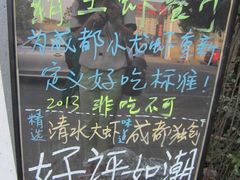 为成都小龙虾重新
定义好吃标准！
2013 非吃不可
精选 清水大虾 味道 成都独创
好评如潮